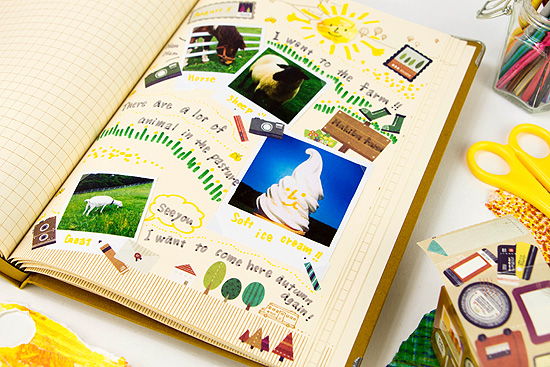 I went to the farm!!
Horse
Sheep
There are a lot of
animal in the pasture
Soft ice cream!!
Goat
See you
I want to come here autumn
again!!